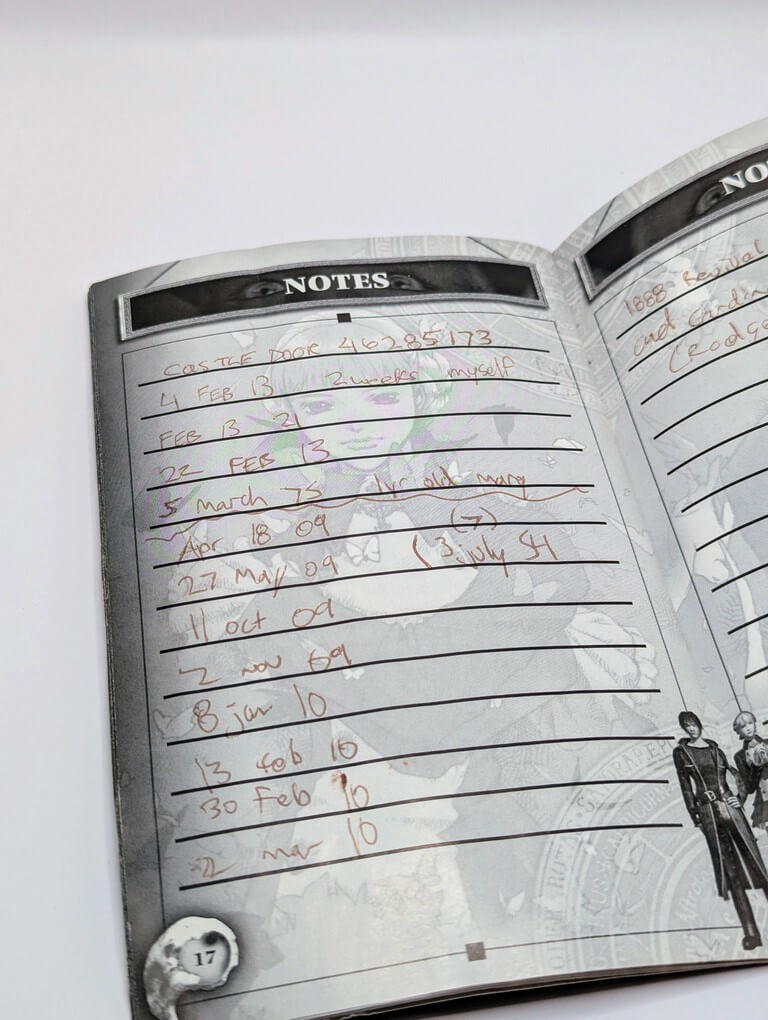 NOTES
CASTLE DOOR 46285173
4 FEB 13 2 weeks myself
FEB 13 21
22 FEB 13
5 March 75 1yr old mary
Apr 18 09 (7)
27 May 09 (3 july 54
11 oct 09
2 nov 09
8 jan 10
13 feb 10
30 Feb 10
2 mar 10
17
NO
1888 Revival
and